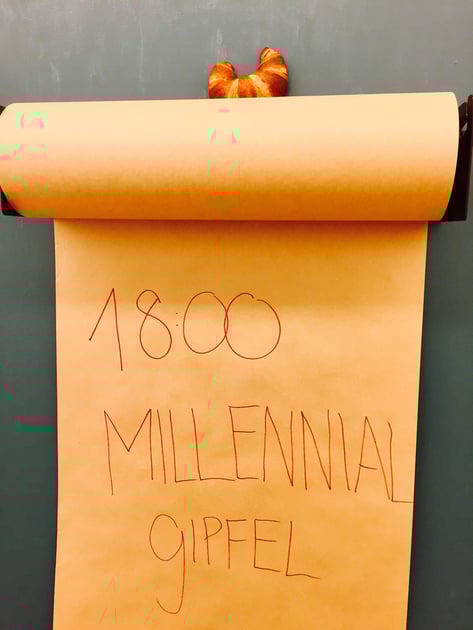 18:00
MILLENNIAL
GIPFEL